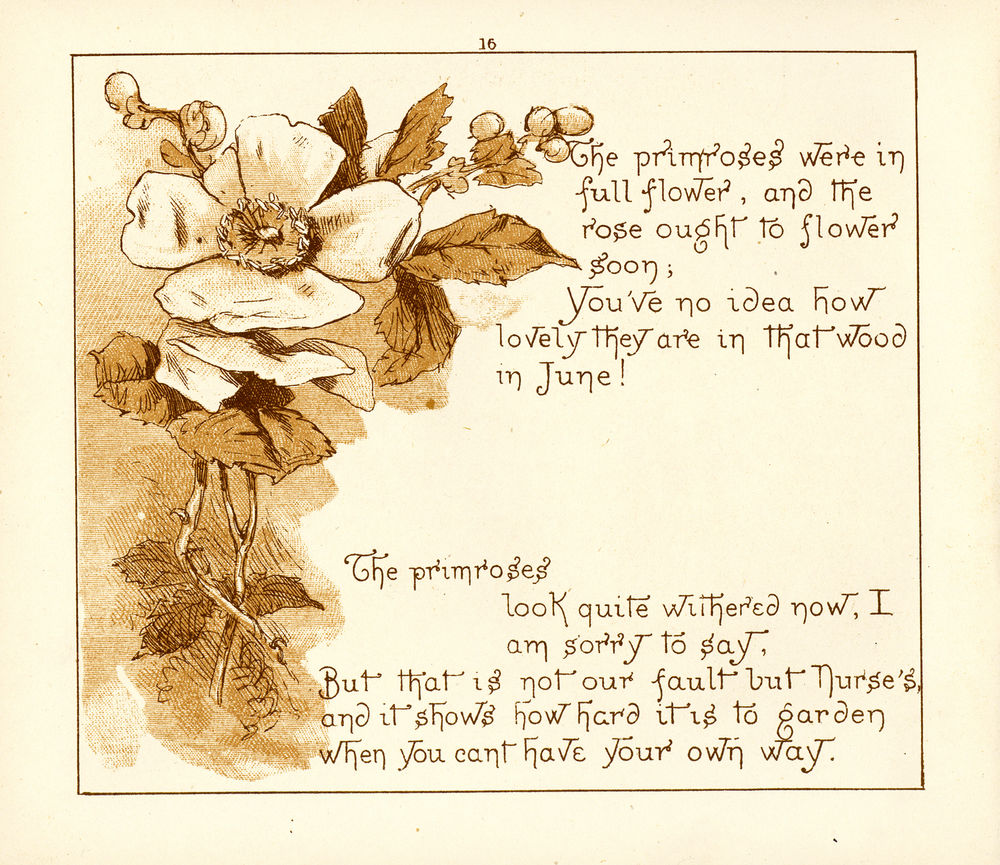 16
The primroses were in
full flower, and the
rose ought to flower
soon;
You've no idea how
lovely they are in that wood
in June!
The primroses
look quite withered now, I
am sorry to say,
But that is not our fault but Nurse's,
and it shows how hard it is to garden
when you cant have your own way.